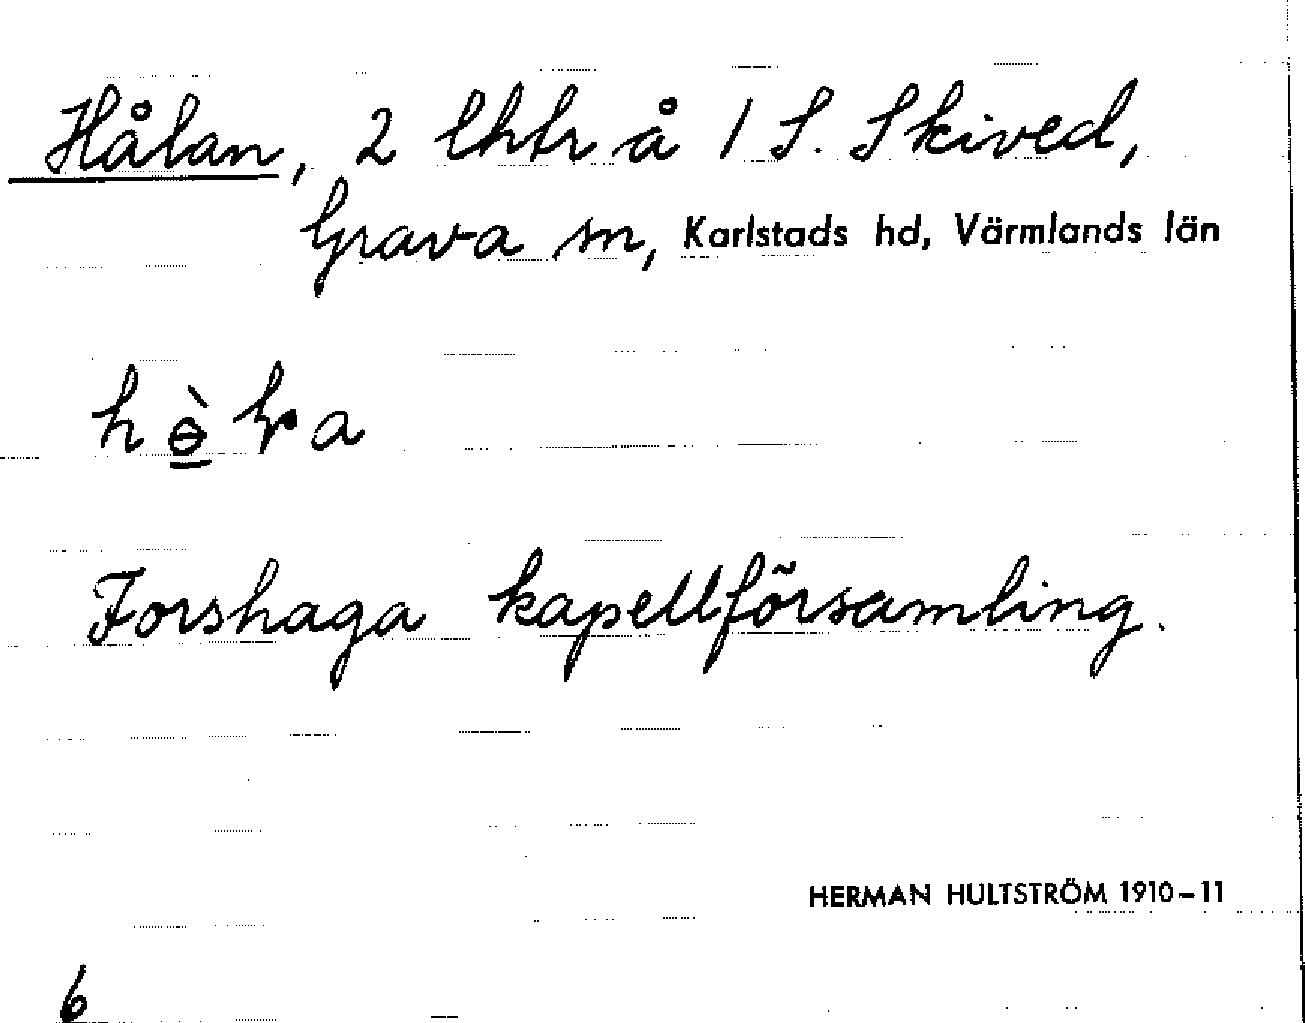 Hålan, 2 lhtr å 1 S. Skived,
Grava sn, Karlstads hd, Värmlands län
Forshaga kapellförsamling.
HERMAN HULTSTRÖM 1910–11
6